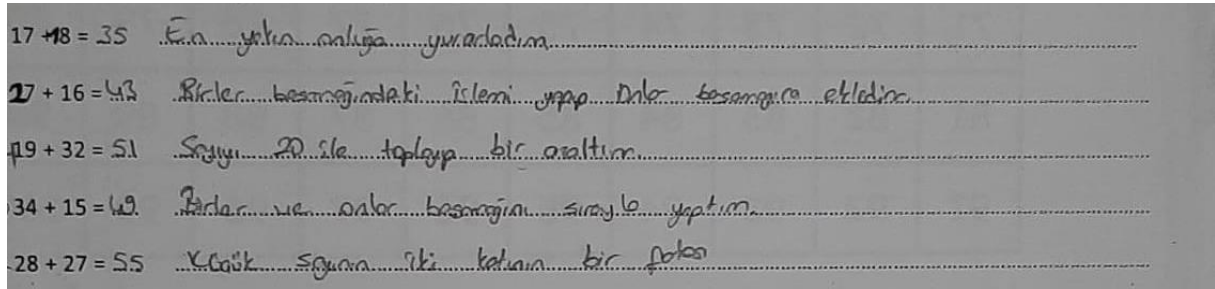 17 + 18 = 35 En yakın onluğa yuvarladım.
27 + 16 = 43 Birler basamağındaki işlemi yapıp onlar basamağına ekledim.
19 + 32 = 51 Sayıyı 20 ile toplayıp bir azalttım.
34 + 15 = 49 Birler ve onlar basamağını sırayla yaptım.
28 + 27 = 55 Küçük sayının iki katının bir fazlası